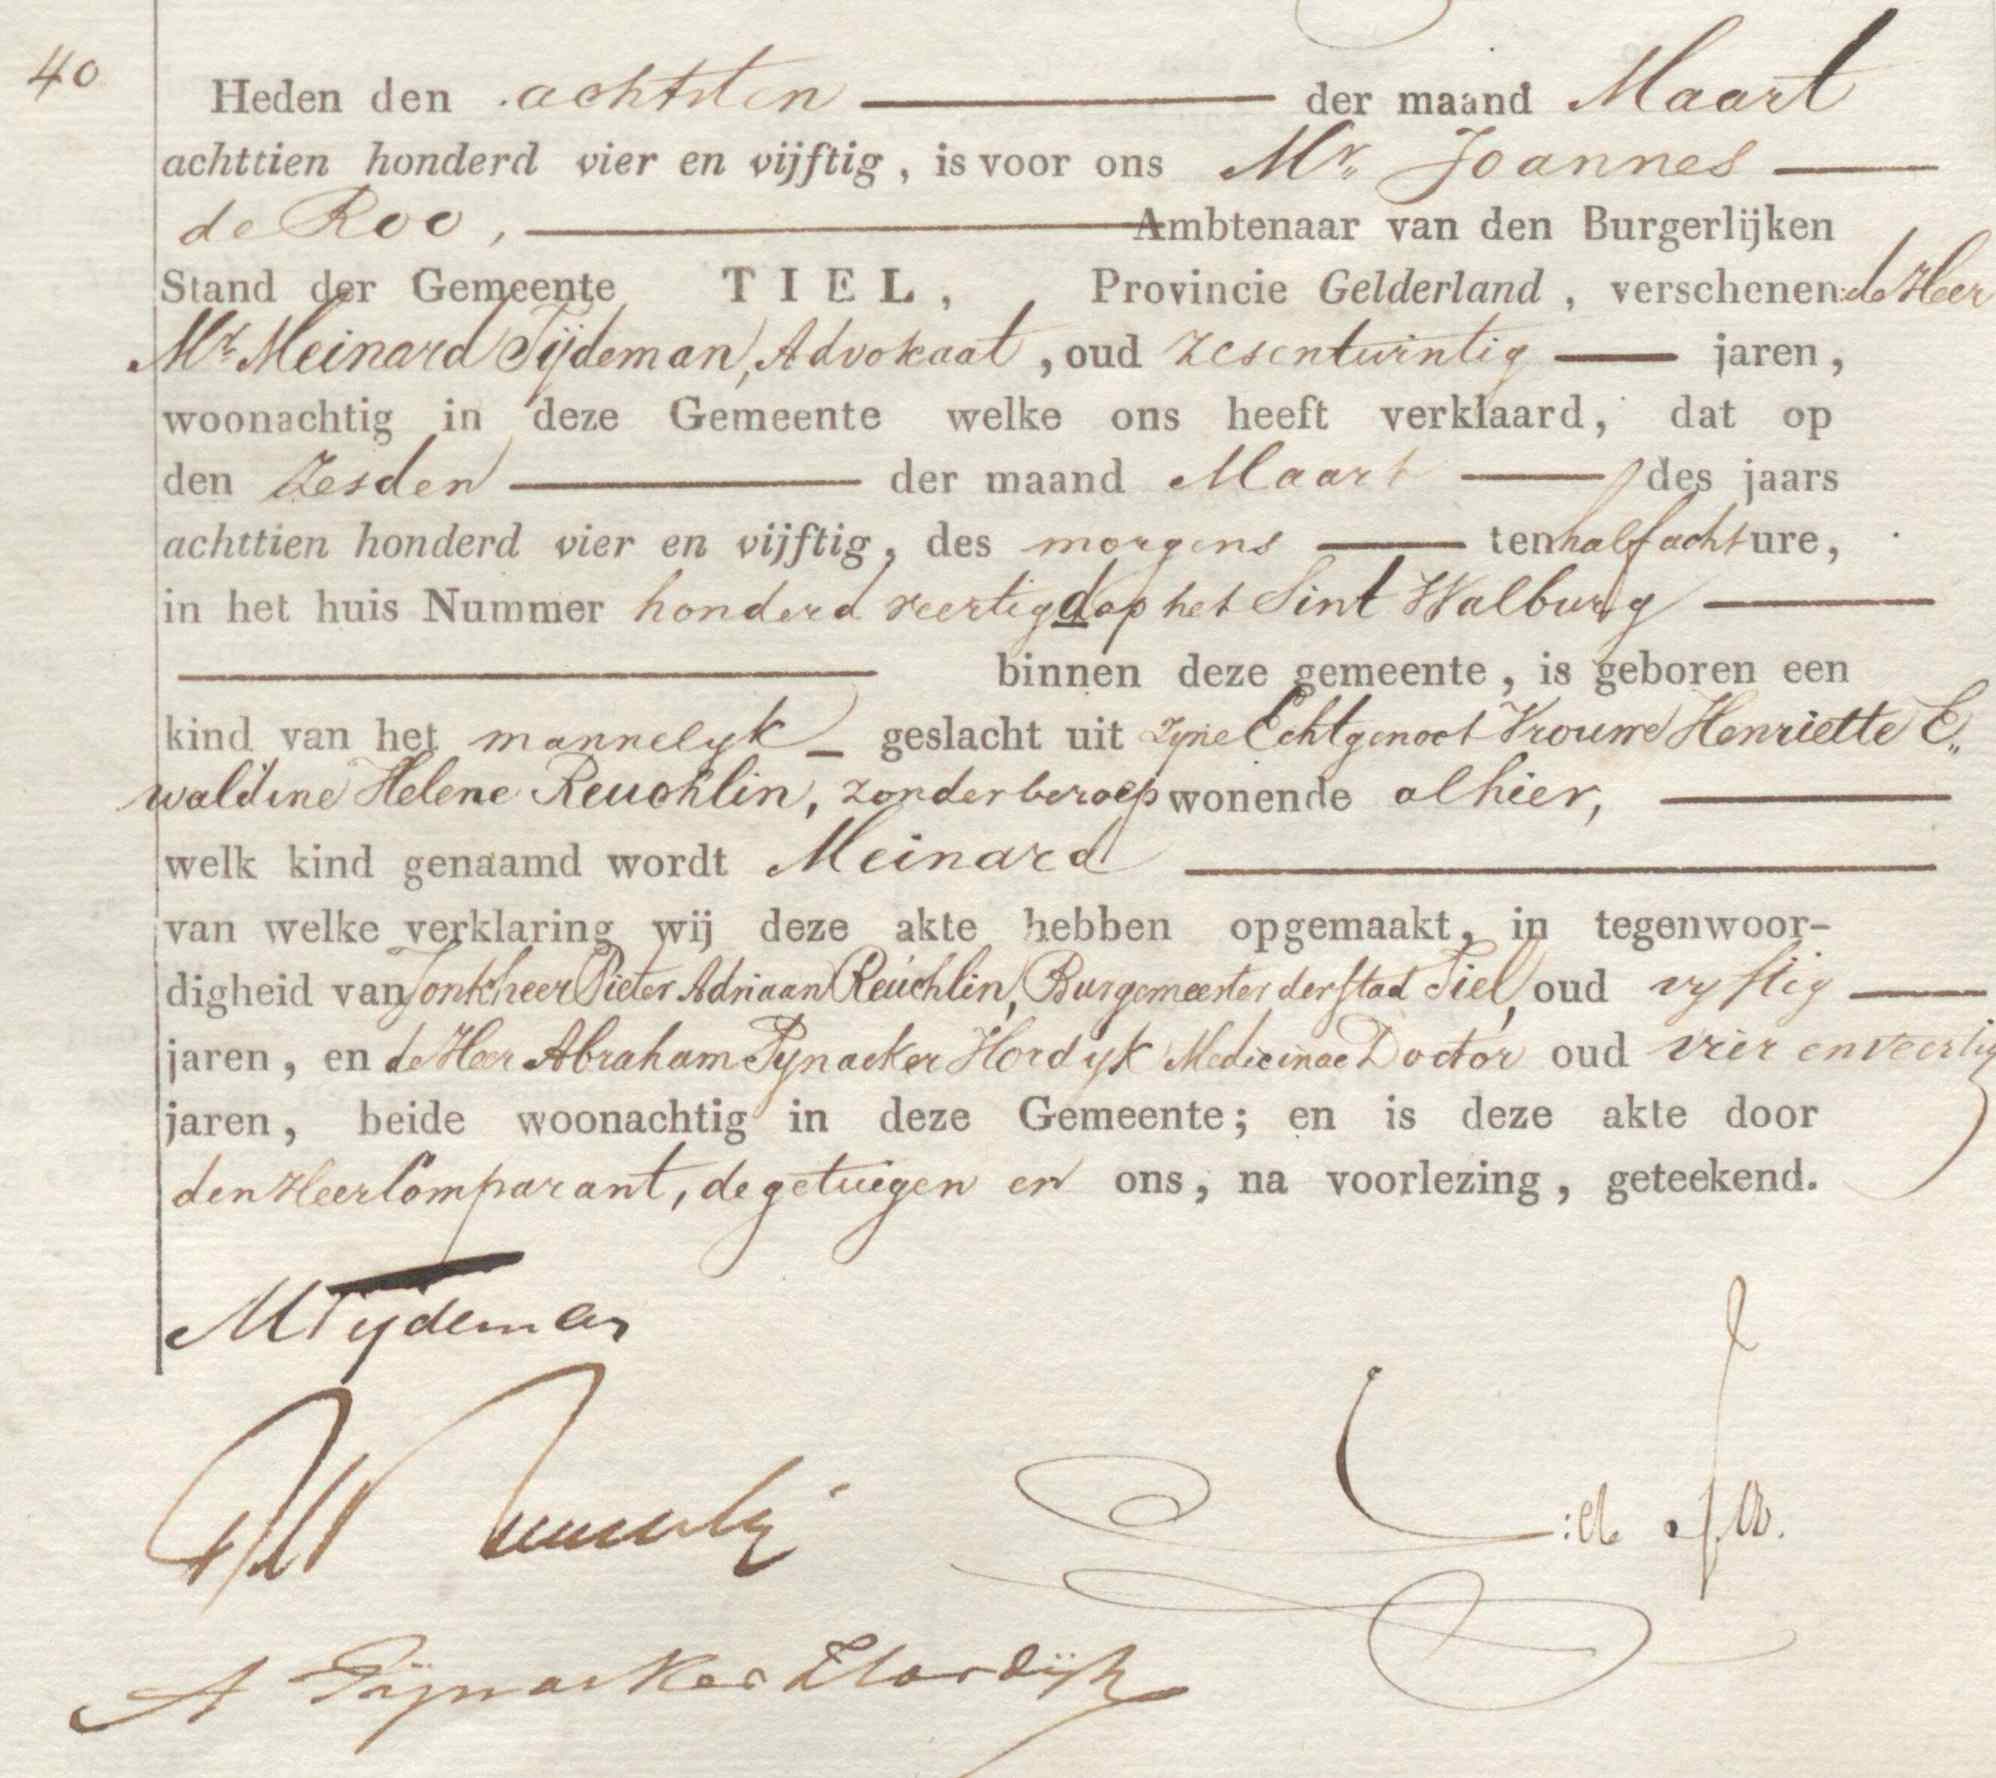 40
Heden den achtsten der maand Maart
achttien honderd vier en vijftig, is voor ons Mr. Joannes
de Roo, Ambtenaar van den Burgerlijken
Stand der Gemeente TIEL, Provincie Gelderland, verschenen de Heer
Mr. Meinard Tijdeman, Advokaat, oud zesentwintig jaren,
woonachtig in deze Gemeente welke ons heeft verklaard, dat op
den zesden der maand Maart des jaars
achttien honderd vier en vijftig, des morgens ten half acht ure,
in het huis Nummer honderd veertig d op het Sint Walburg
binnen deze gemeente, is geboren een
kind van het mannelyk geslacht uit zyne Echtgenoot Vrouwe Henriette E„
waldine Helene Reuchlin, zonder beroep wonende alhier,
welk kind genaamd wordt Meinard
van welke verklaring wij deze akte hebben opgemaakt, in tegenwoor-
digheid van Jonkheer Pieter Adriaan Reuchlin, Burgemeester der stad Tiel, oud vyftig
jaren, en de Heer Abraham Pynacker Hordyk Medicinae Doctor oud vier en veertig
jaren, beide woonachtig in deze Gemeente; en is deze akte door
den Heer Comparant, de getuigen en ons, na voorlezing, geteekend.
MTydeman
A Pijnacker Hordijk